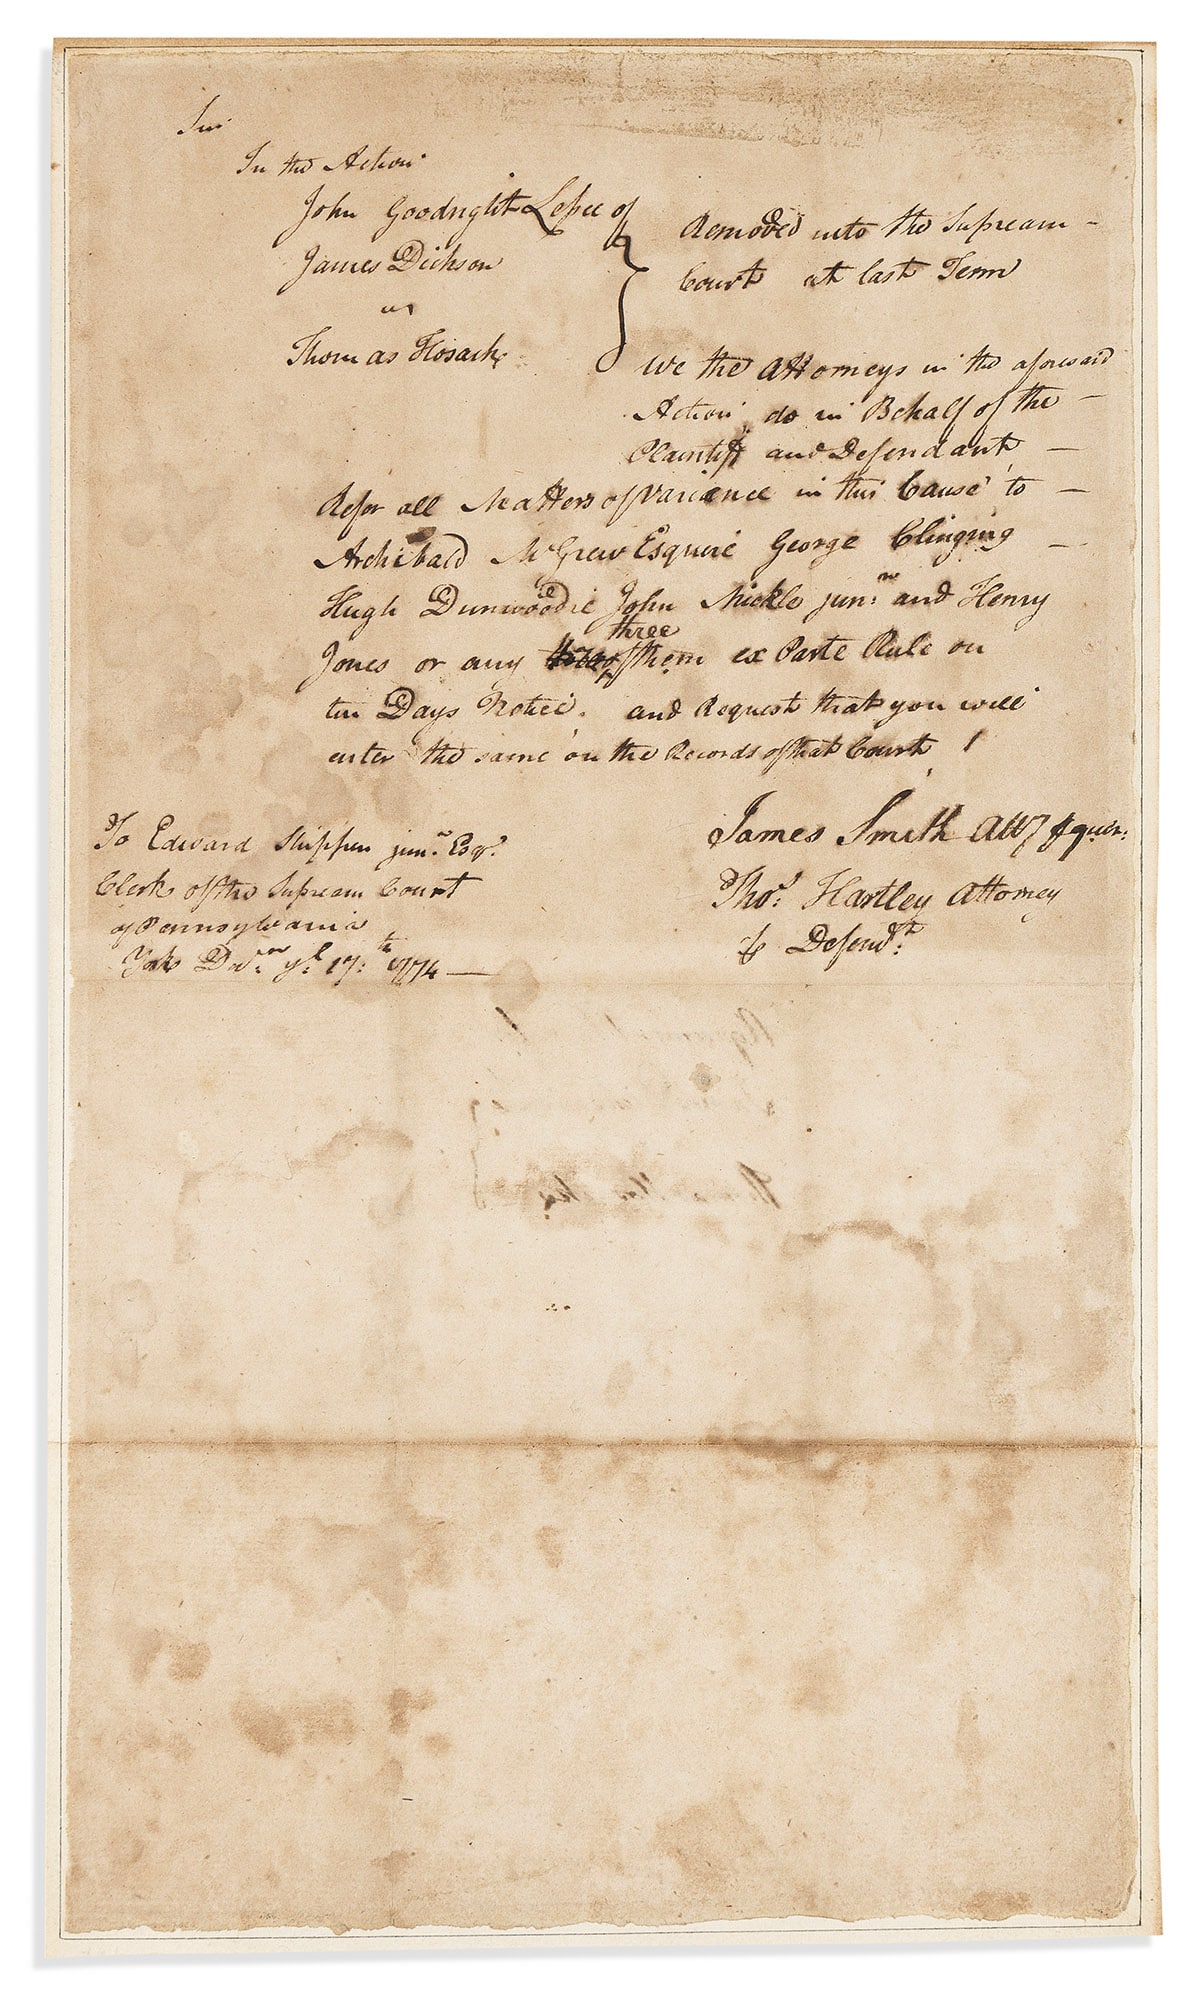 Sir
In the Action
John Goodright Lessee of
James Dickson
vs
Thomas Hosack
Removed into the Supream
Court at last Term
We the Attorneys in the aforesaid
Action do in Behalf of the
Plaintiff and Defendant
Refer all Matters of Variance in this Cause to
Archibald McGrew Esquire George Clinging
Hugh Dunwoodie John Mickle junr. and Henry
Jones or any three of them ex Parte Rule on
ten Days Notice. and Request that you will
enter the same on the Records of that Court
James Smith Atty
Thos. Hartley Attorney
Defendt.
To Edward Shippen junr. Esqr.
Clerk of the Supream Court
of Pennsylvania
York ye. 17th. 1774